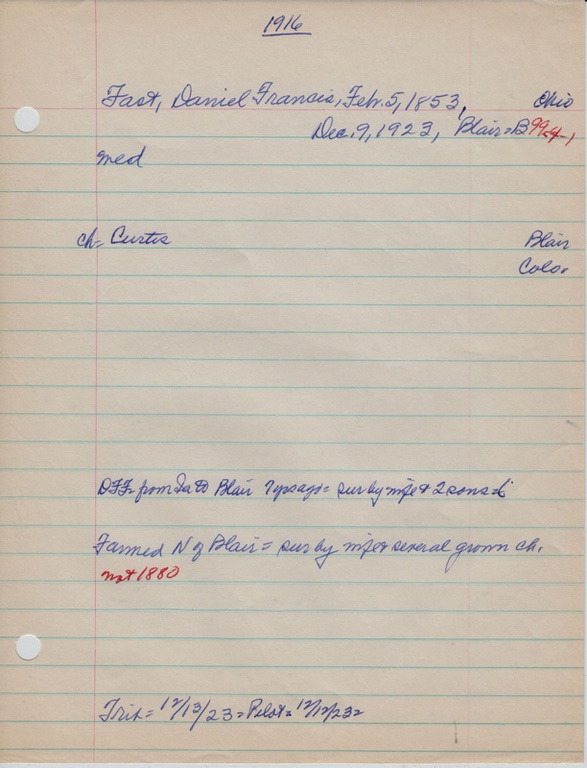 1916
Fast, Daniel Francis, Feb. 5, 1853, Ohio
Dec. 9, 1923, Blair=B 99-4-1
med
ch= Curtis Blair
Colo.
DFF from Ia to Blair 7 yrs ago= sur by wife & 2 sons=
Farmed N of Blair= sur by wife & several grown ch.
not 1880
Trib= 12/13/23= Pilot= 12/12/23=